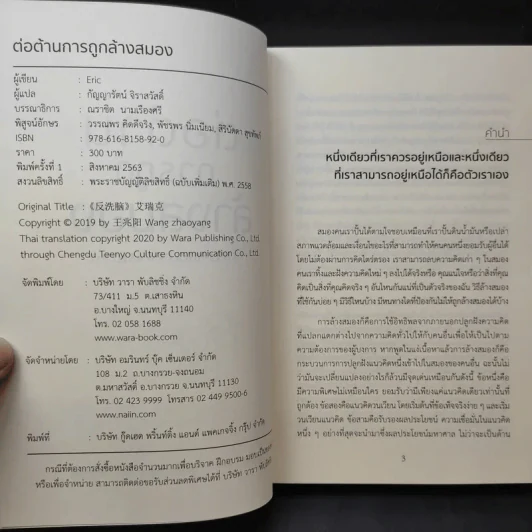 ต่อต้านการถูกล้างสมอง
ผู้เขียน : Eric
ผู้แปล : กัญญารัตน์ จิราสวัสดิ์
บรรณาธิการ : ณราชิต นามเรืองศรี
พิสูจน์อักษร : วรรณพร คิดดีจริง, พัชรพร นิ่มเนียม, สิรินัดดา สุขทิพย์
ISBN : 978-616-8158-92-0
ราคา : 300 บาท
พิมพ์ครั้งที่ 1 : สิงหาคม 2563
สงวนลิขสิทธิ์ : พระราชบัญญัติลิขสิทธิ์ (ฉบับเพิ่มเติม) พ.ศ. 2558
Original Title :《反洗脑》艾瑞克
Copyright © 2019 by 王兆阳 Wang zhaoyang
Thai translation copyright 2020 by Wara Publishing Co., Ltd.
through Chengdu Teenyo Culture Communication Co., Ltd.
จัดพิมพ์โดย : บริษัท วารา พับลิชชิ่ง จำกัด
73/411 ม.5 ต.เสาธงหิน
อ.บางใหญ่ จ.นนทบุรี 11140
โทร. 02 058 1688
www.wara-book.com
จัดจำหน่ายโดย : บริษัท อมรินทร์ บุ๊ค เซ็นเตอร์ จำกัด
108 ม.2 ถ.บางกรวย-จงถนอม
ต.มหาสวัสดิ์ อ.บางกรวย จ.นนทบุรี 11130
โทร. 02 423 9999 โทรสาร 02 449 9500-6
www.naiin.com
พิมพ์ที่ : บริษัท กู๊ดเฮด พริ้นท์ติ้ง แอนด์ แพคเกจจิ้ง กรุ๊ป จำกัด
กรณีที่ต้องการสั่งซื้อหนังสือจำนวนมากเพื่อบริจาค ฝึกอบรม มอบเป็นของ
หรือเพื่อจำหน่าย สามารถติดต่อขอรับส่วนลดพิเศษได้ที่ บริษัท วารา พับลิชชิ่ง
คำนำ
หนึ่งเดียวที่เราควรอยู่เหนือและหนึ่งเดียว
ที่เราสามารถอยู่เหนือได้ก็คือตัวเราเอง
สมองคนเราปั้นได้ตามใจชอบเหมือนที่เราปั้นดินน้ำมันหรือเปล่า
สภาพแวดล้อมและเงื่อนไขอะไรที่สามารถทำให้คนคนหนึ่งยอมรับผู้อื่นได้
โดยไม่ต้องผ่านการคิดไตร่ตรอง เราสามารถลบความคิดเก่า ๆ ในสมอง
คนเราทิ้งและฝังความคิดใหม่ ๆ ลงไปได้จริงหรือ คุณแน่ใจหรือว่าสิ่งที่คุณ
คิดเป็นสิ่งที่คุณคิดจริง ๆ อันไหนกันแน่ที่เป็นตัวจริงของฉัน วิธีล้างสมอง
ที่ใช้กันบ่อย ๆ มีวิธีไหนบ้าง มีหนทางใดที่ป้องกันไม่ให้ถูกล้างสมองได้บ้าง
การล้างสมองก็คือการใช้อิทธิพลจากภายนอกปลูกฝังความคิด
ที่แปลกแตกต่างไปจากความคิดทั่วไปให้กับคนอื่นเพื่อให้เป็นไปตาม
ความต้องการของผู้บงการ หากพูดในแง่เนื้อหาแล้วการล้างสมองก็คือ
กระบวนการการปลูกฝังแนวคิดหนึ่งเข้าไปในสมองของคนอื่น ฉะนั้นไม่
ว่ามันจะเปลี่ยนแปลงอย่างไรก็ล้วนมีจุดเด่นเหมือนกันดังนี้ ข้อหนึ่งคือ
มีความพิเศษไม่เหมือนใคร ยอมรับว่ามีเพียงแค่แนวคิดเดียวเท่านั้นที่
ถูกต้อง ข้อสองคือแนวคิดวนเวียน โดยเริ่มต้นที่ข้อเท็จจริงง่าย ๆ และเริ่ม
วนเวียนแนวคิด ข้อสามคือรับรองผลประโยชน์ ความเชื่อมั่นในแนวคิด
หนึ่ง ๆ อย่างที่สุดจะนำมาซึ่งผลประโยชน์มหาศาล ไม่ว่าจะเป็นด้าน
3